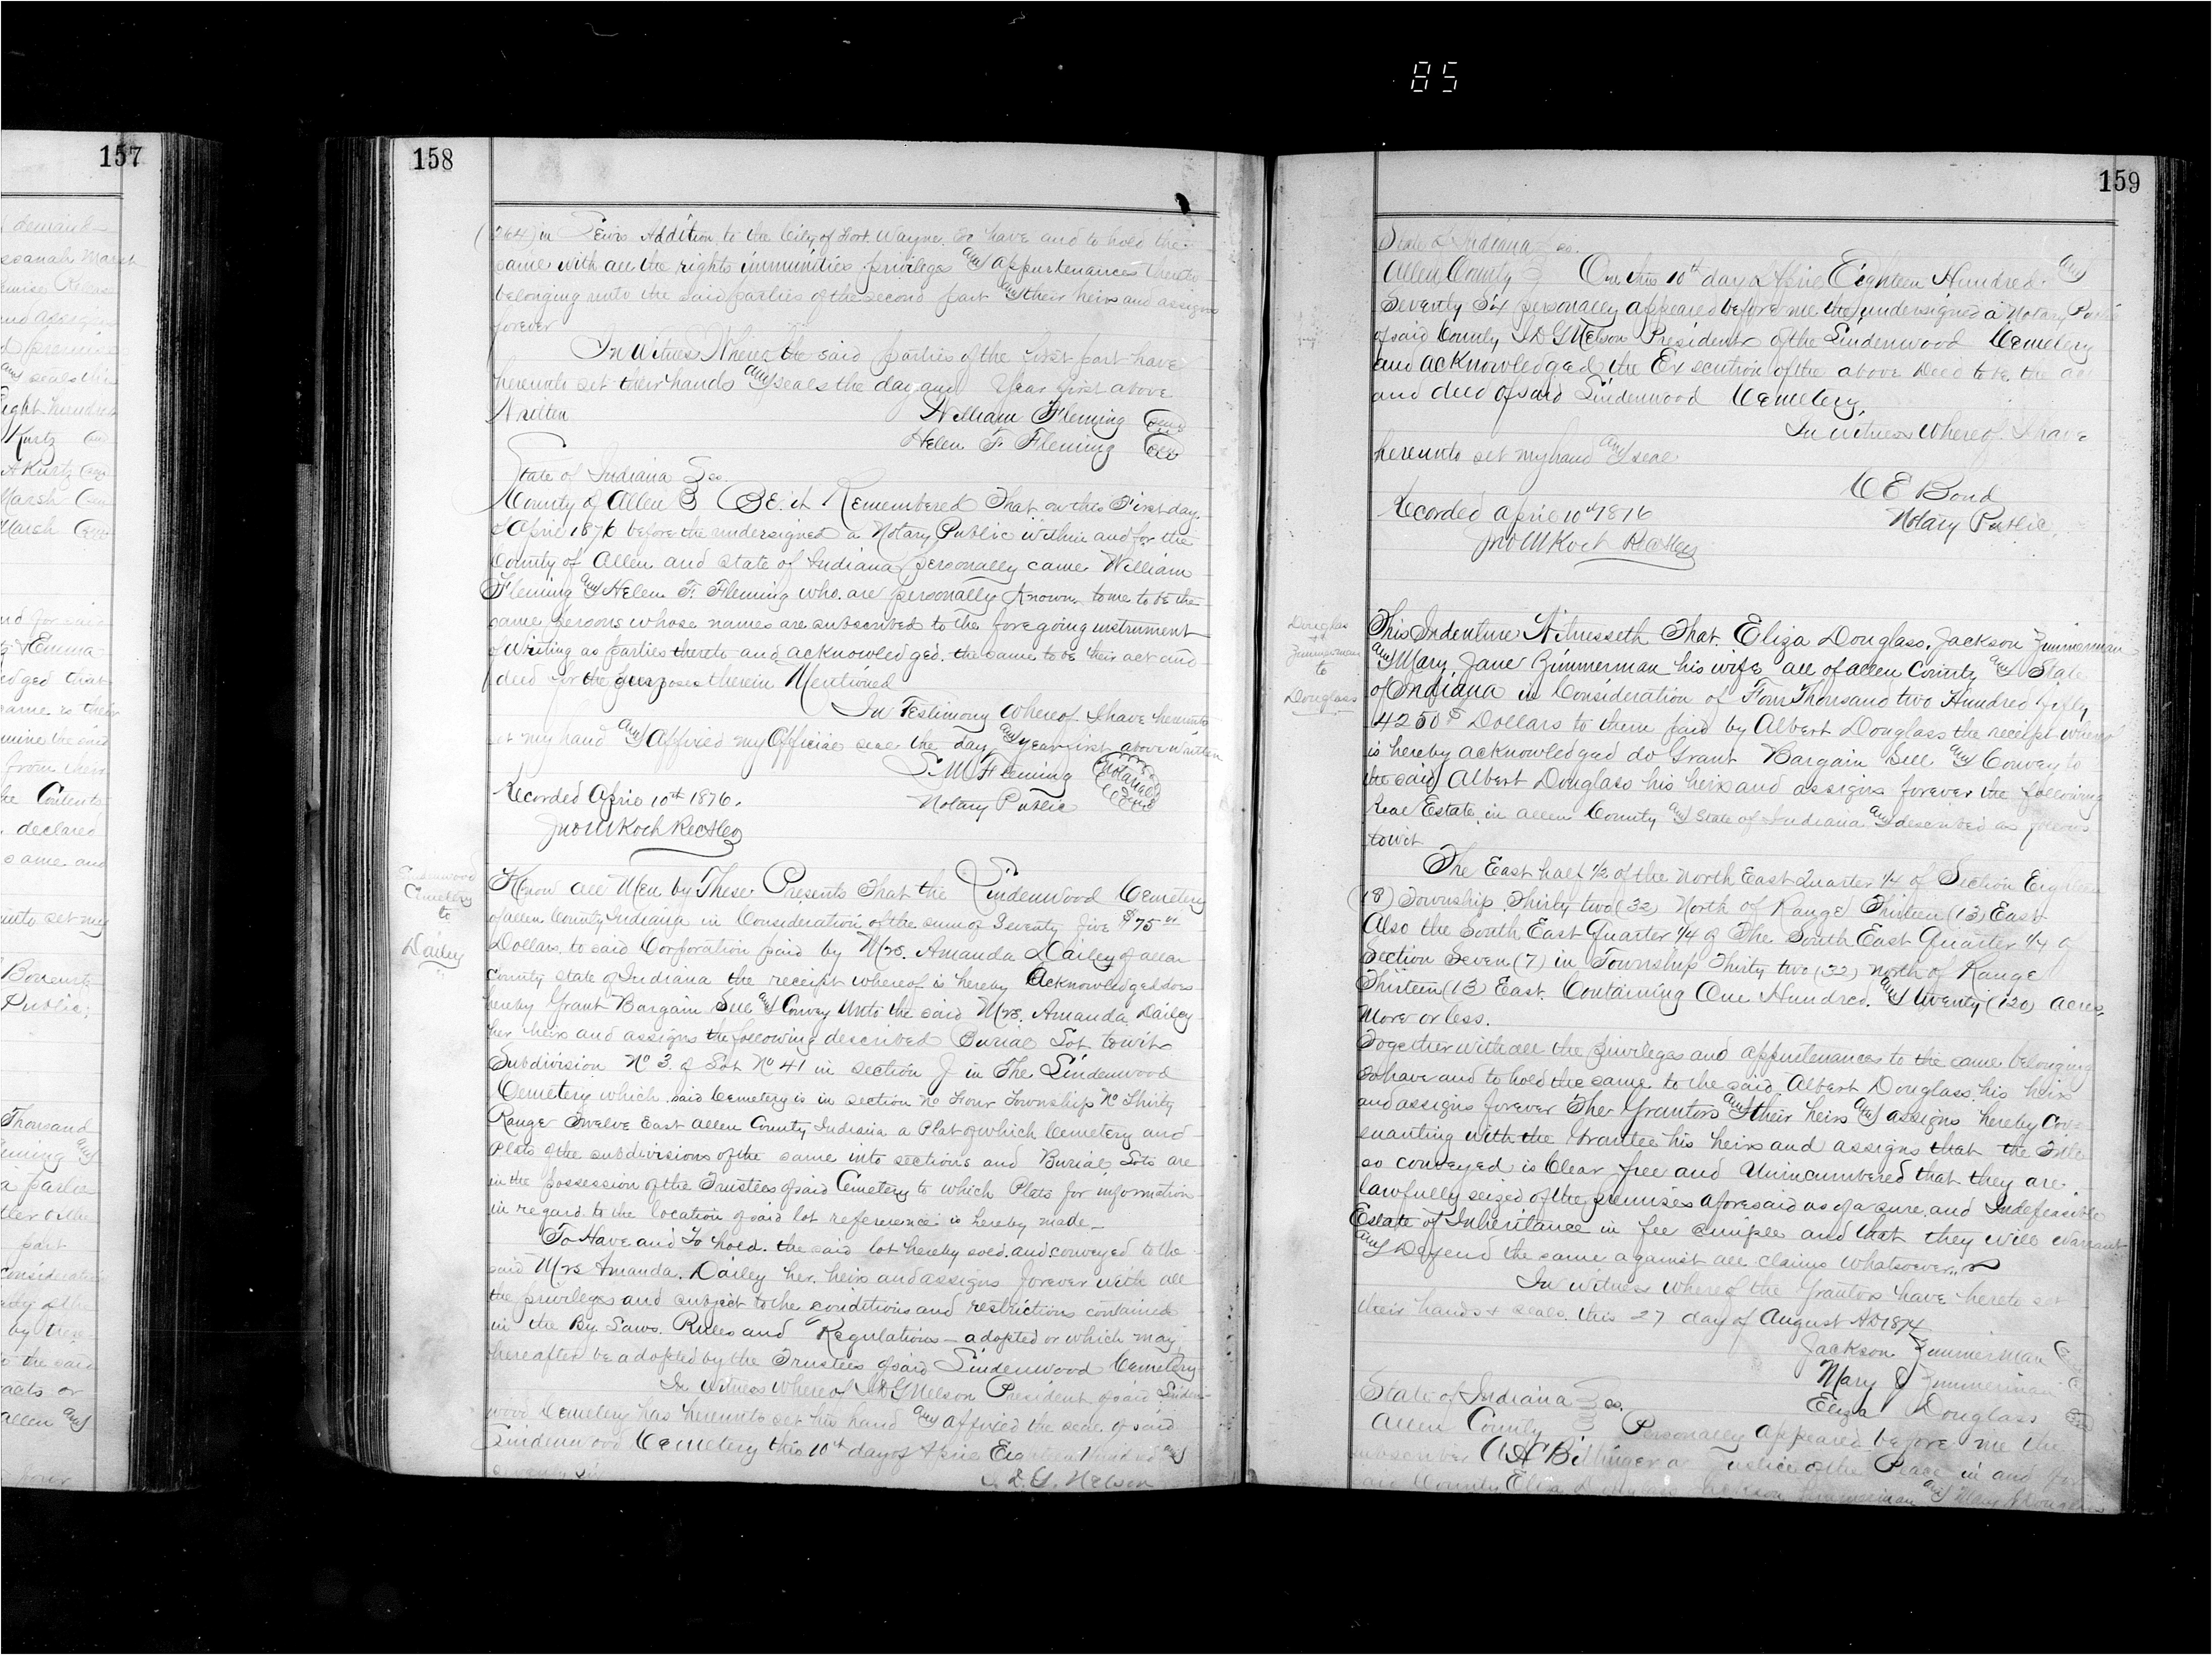 85
157
demand
Marsh
Eight hundred
Kurtz
A Kurtz
Marsh
Marsh
and for said
& Emma
edged that
same is their
from their
the Contents
declared
same and
unto set my
Public;
Thousand
a parties
part
Consideration
by these
to the said
acts or
allen and
four
158
(264) in Lewis Addition to the City of Fort Wayne. To have and to hold the
same with all the rights immunities privileges and appurtenances thereto
belonging unto the said parties of the second part and their heirs and assigns
forever
In Witness Whereof the said parties of the first part have
hereunto set their hands and seals the day and Year first above
Written William Fleming Seal
Helen F. Fleming Seal
State of Indiana } ss.
County of Allen } BE it Remembered That on this First day
of April 1876 before the undersigned a Notary Public within and for the
County of Allen and State of Indiana personally came William
Fleming and Helen F. Fleming who are personally known to me to be the
same persons whose names are subscribed to the foregoing instrument
of Writing as parties thereto and acknowledged the same to be their act and
deed for the purposes therein Mentioned
In Testimony whereof I have hereunto
set my hand and Affixed my Official seal the day and year first above written
S. M Fleming Notarial Seal
Recorded April 10th 1876. Notary Public
Jno M Koch Rec
Lindenwood
Cemetery
to
Dailey
Know all Men by These Presents That the Lindenwood Cemetery
of Allen County Indiana in Consideration of the sum of Seventy five $75
Dollars to said Corporation paid by Mrs. Amanda Dailey of Allen
County State of Indiana the receipt whereof is hereby Acknowledged does
hereby Grant Bargain Sell and Convey Unto the said Mrs. Amanda Dailey
her heirs and assigns the following described Burial Lot to wit
Subdivision No 3 of Lot No 41 in section J in The Lindenwood
Cemetery which said Cemetery is in section No Four Township No Thirty
Range Twelve East Allen County Indiana a Plat of which Cemetery and
Plats of the subdivisions of the same into sections and Burial Lots are
in the possession of the Trustees of said Cemetery to which Plats for information
in regard to the location of said lot referrence is hereby made
To Have and To hold the said lot hereby sold and conveyed to the
said Mrs Amanda Dailey her heirs and assigns forever with all
the privileges and subject to the conditions and restrictions contained
in the By Laws Rules and Regulations adopted or which may
hereafter be adopted by the Trustees of said Lindenwood Cemetery
In Witness whereof I D G Nelson President of said Linden-
wood Cemetery has hereunto set his hand and affixed the seal of said
Lindenwood Cemetery this 10th day of April Eighteen Hundred and
Seventy Six
I. D. G. Nelson
159
State of Indiana } ss.
Allen County } On this 10th day of April Eighteen Hundred and
Seventy Six personally appeared before me the undersigned a Notary Public
of said County I D G Nelson President of the Lindenwood Cemetery
and acknowledged the Execution of the above Deed to be the act
and deed of said Lindenwood Cemetery
In witness whereof I have
hereunto set my hand and seal
C E Bond
Recorded April 10th 1876 Notary Public
Jno M Koch Rec
Douglas
Zimmerman
to
Douglass
This Indenture Witnesseth That Eliza Douglass, Jackson Zimmerman
and Mary Jane Zimmerman his wife all of Allen County and State
of Indiana in Consideration of Four Thousand two Hundred fifty
4250 Dollars to them paid by Albert Douglass the receipt whereof
is hereby acknowledged do Grant Bargain Sell and Convey to
the said Albert Douglass his heirs and assigns forever the following
Real Estate in Allen County and State of Indiana and described as follows
towit
The East half 1/2 of the North East Quarter 1/4 of Section Eighteen
(18) Township Thirty two (32) North of Range Thirteen (13) East
Also the South East Quarter 1/4 of The South East Quarter 1/4 of
Section Seven (7) in Township Thirty two (32) north of Range
Thirteen (13) East. Containing One Hundred and twenty (120) acres
More or less.
Together with all the privileges and appurtenances to the same belonging
To have and to hold the same to the said Albert Douglass his heirs
and assigns forever The Grantors and their heirs and assigns hereby Cove-
nanting with the Grantee his heirs and assigns that the Title
so conveyed is Clear free and Unincumbered that they are
lawfully seized of the premises aforesaid as of a sure and Indefeasible
Estate of Inheritance in fee simple and that they will Warrant
and Defend the same against all claims whatsoever
In witness whereof the Grantors have hereto set
their hands & seals this 27 day of August AD 1874
Jackson Zimmerman
Mary J Zimmerman
State of Indiana } ss. Eliza Douglass
Allen County } Personally appeared before me the
subscriber Justice of the Peace in and for
said County Eliza Douglass Jackson Zimmerman and Mary